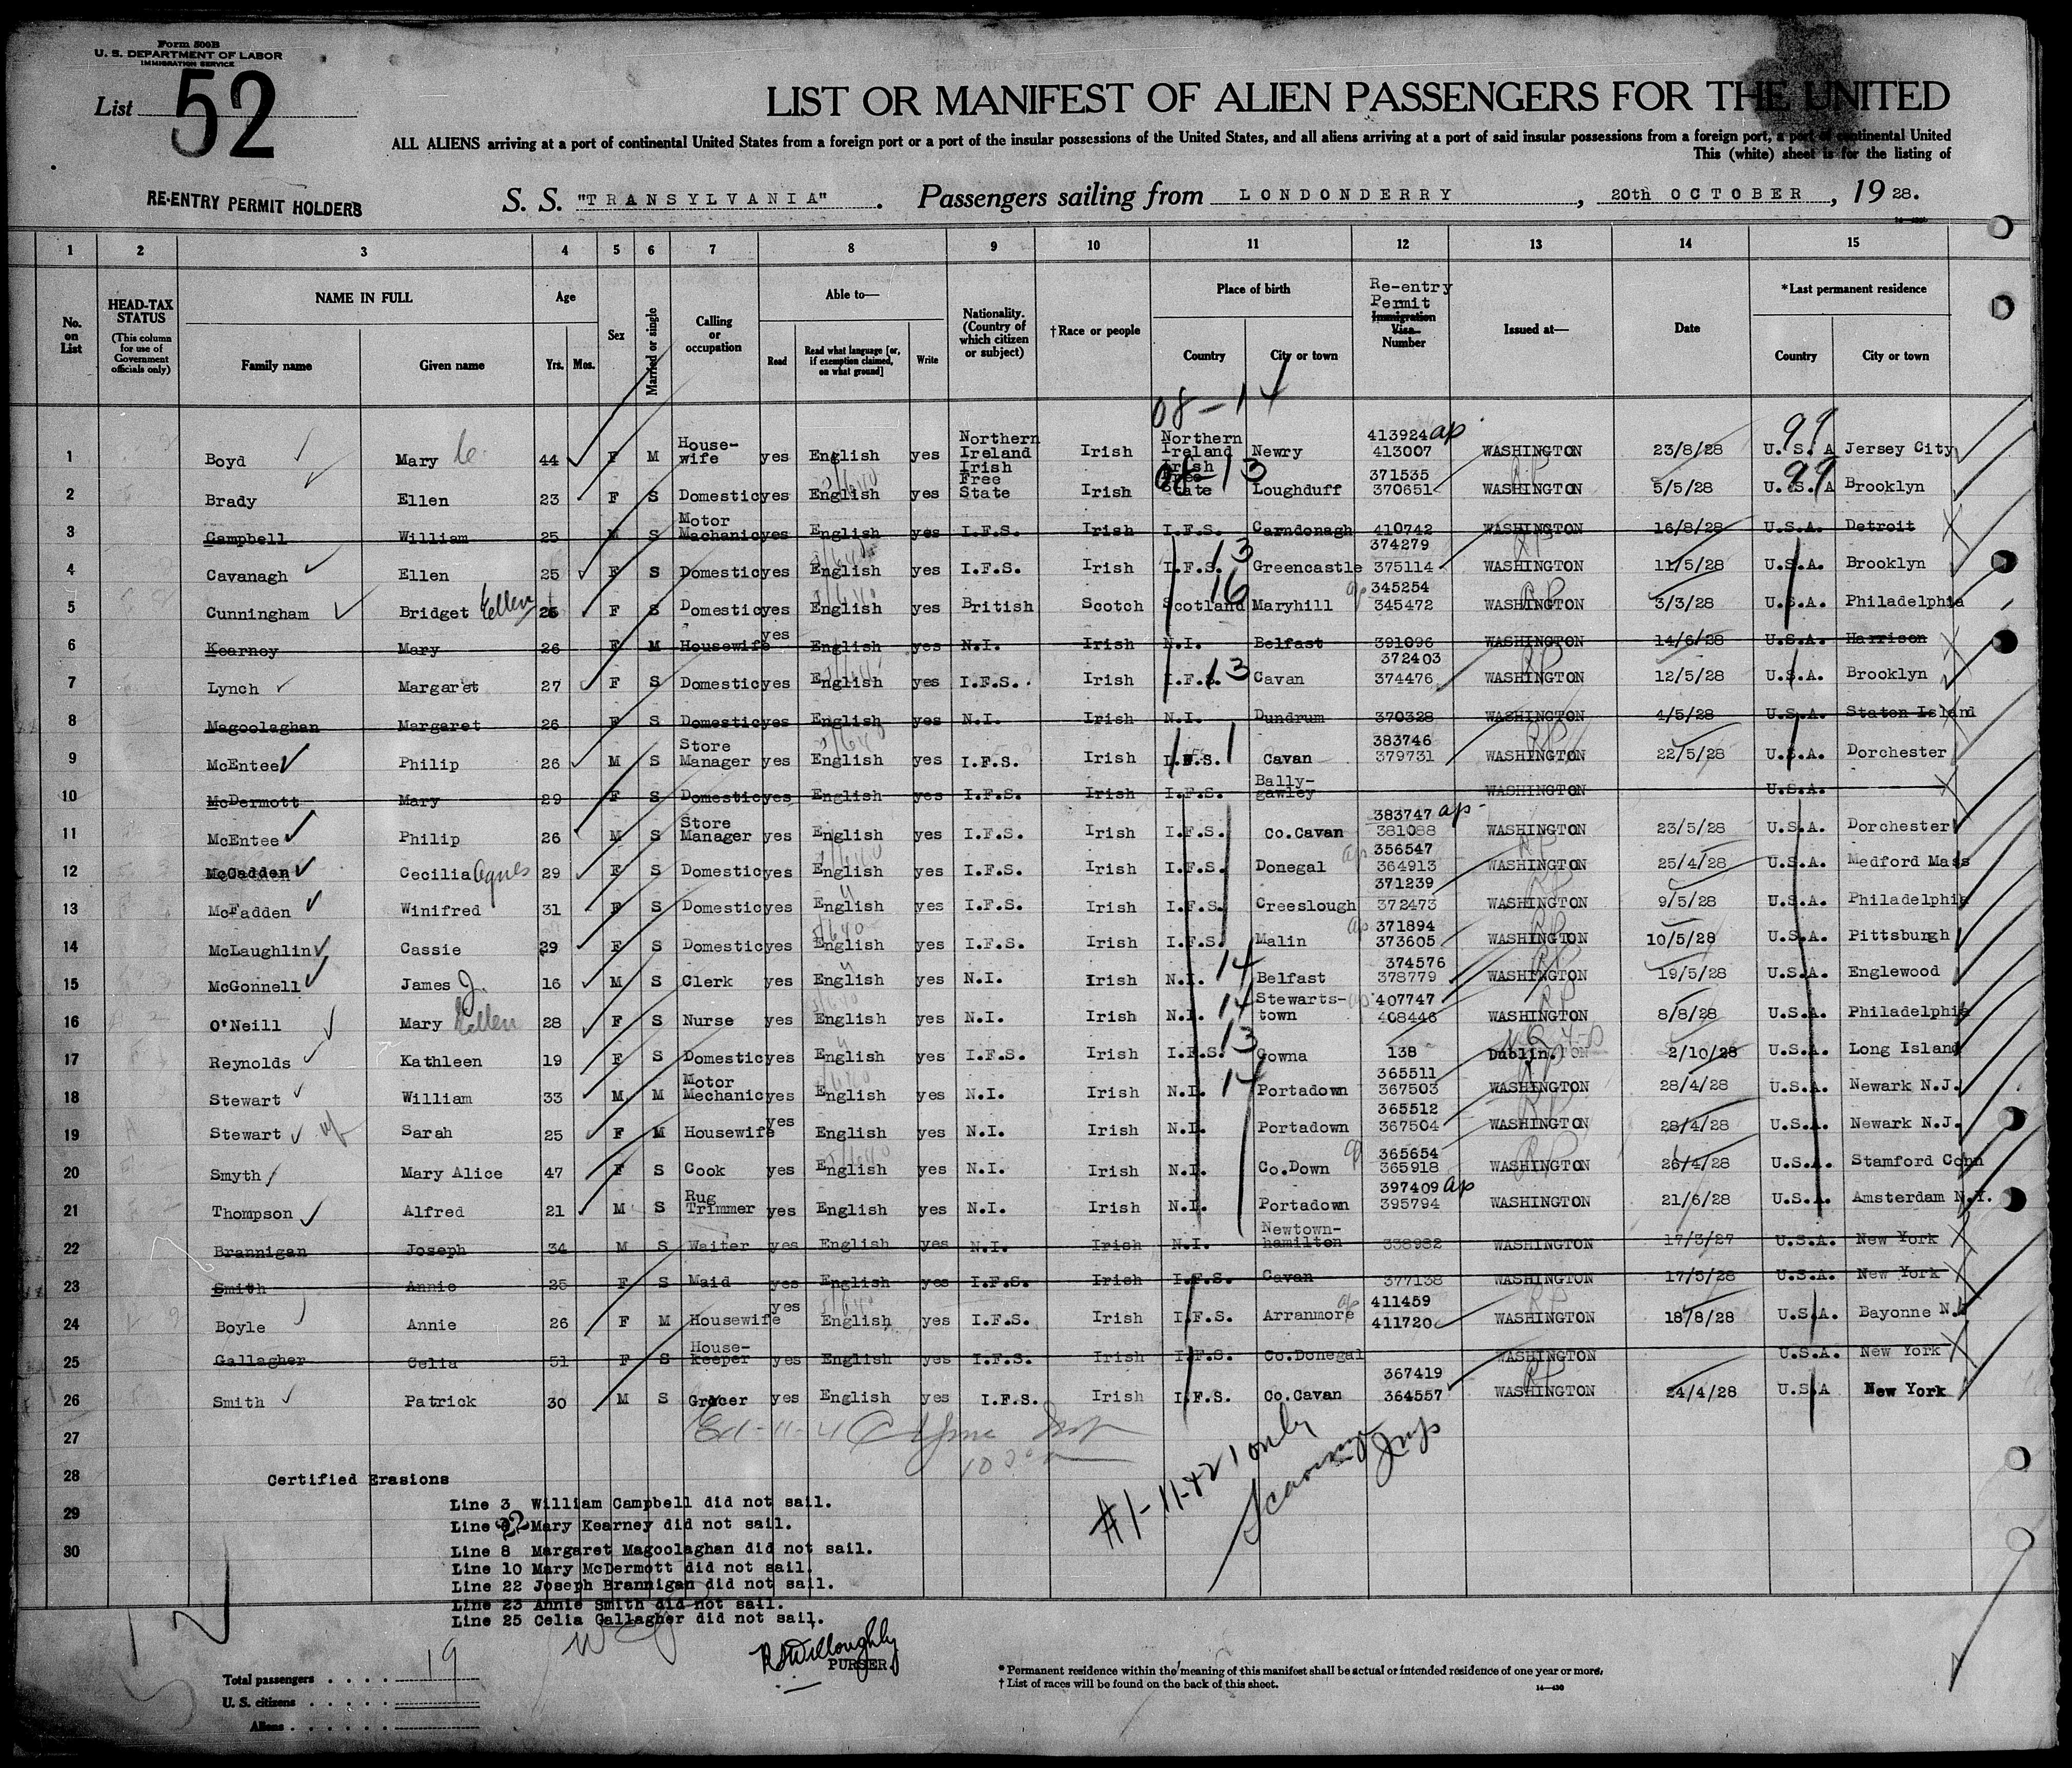 Form 500B
U. S. DEPARTMENT OF LABOR
IMMIGRATION SERVICE
List 52
LIST OR MANIFEST OF ALIEN PASSENGERS FOR THE UNITED
ALL ALIENS arriving at a port of continental United States from a foreign port or a port of the insular possessions of the United States, and all aliens arriving at a port of said insular possessions from a foreign port, a port of continental United
This (white) sheet is for the listing of
RE-ENTRY PERMIT HOLDERS
S. S. "TRANSYLVANIA". Passengers sailing from LONDONDERRY, 20th OCTOBER, 1928.
1 2 3 4 5 6 7 8 9 10 11 12 13 14 15
No. on List
HEAD-TAX STATUS (This column for use of Government officials only)
NAME IN FULL Family name Given name
Age Yrs. Mos.
Sex
Married or single
Calling or occupation
Able to— Read Read what language [or, if exemption claimed, on what ground] Write
Nationality. (Country of which citizen or subject)
†Race or people
Place of birth Country City or town
Re-entry Permit Immigration Visa Number
Issued at—
Date
*Last permanent residence Country City or town
08-14 99
1 Boyd Mary C. 44 F M House-wife yes English yes Northern Ireland Irish Northern Ireland Newry 413924 ap 413007 WASHINGTON 23/8/28 U.S.A Jersey City
2 Brady Ellen 23 F S Domestic yes English yes Irish Free State Irish Irish Free State 08-13 Loughduff 371535 370651 WASHINGTON 5/5/28 U.S.A 99 Brooklyn
3 Campbell William 25 M S Motor Machanic yes English yes I.F.S. Irish I.F.S. Carndonagh 410742 WASHINGTON 16/8/28 U.S.A. Detroit
4 Cavanagh Ellen 25 F S Domestic yes English yes I.F.S. Irish I.F.S. 13 Greencastle 374279 375114 WASHINGTON 11/5/28 U.S.A. Brooklyn
5 Cunningham Bridget Ellen 26 F S Domestic yes English yes British Scotch Scotland 16 Maryhill ap 345254 345472 WASHINGTON 3/3/28 U.S.A. Philadelphia
6 Kearney Mary 26 F M Housewife yes English yes N.I. Irish N.I. Belfast 391096 WASHINGTON 14/6/28 U.S.A. Harrison
7 Lynch Margaret 27 F S Domestic yes English yes I.F.S. Irish I.F.S. 13 Cavan 372403 374476 WASHINGTON 12/5/28 U.S.A. Brooklyn
8 Magoolaghan Margaret 26 F S Domestic yes English yes N.I. Irish N.I. Dundrum 370328 WASHINGTON 4/5/28 U.S.A. Staten Island
9 McEntee Philip 26 M S Store Manager yes English yes I.F.S. Irish I.F.S. Cavan 383746 379731 WASHINGTON 22/5/28 U.S.A. Dorchester
10 McDermott Mary 29 F S Domestic yes English yes I.F.S. Irish I.F.S. Bally-gawley WASHINGTON U.S.A.
11 McEntee Philip 26 M S Store Manager yes English yes I.F.S. Irish I.F.S. Co.Cavan 383747 ap 381088 WASHINGTON 23/5/28 U.S.A. Dorchester
12 McCadden Cecilia Agnes 29 F S Domestic yes English yes I.F.S. Irish I.F.S. Donegal ap 356547 364913 WASHINGTON 25/4/28 U.S.A. Medford Mass
13 McFadden Winifred 31 F S Domestic yes English yes I.F.S. Irish I.F.S. Creeslough 371239 372473 WASHINGTON 9/5/28 U.S.A. Philadelphia
14 McLaughlin Cassie 29 F S Domestic yes English yes I.F.S. Irish I.F.S. Malin ap 371894 373605 WASHINGTON 10/5/28 U.S.A. Pittsburgh
15 McGonnell James J. 16 M S Clerk yes English yes N.I. Irish N.I. 14 Belfast 374576 378779 WASHINGTON 19/5/28 U.S.A. Englewood
16 O'Neill Mary Ellen 28 F S Nurse yes English yes N.I. Irish N.I. 14 Stewarts-town ap 407747 408446 WASHINGTON 8/8/28 U.S.A. Philadelphia
17 Reynolds Kathleen 19 F S Domestic yes English yes I.F.S. Irish I.F.S. 13 Gowna 138 Dublin. 2/10/28 U.S.A. Long Island
18 Stewart William 33 M M Motor Mechanic yes English yes N.I. Irish N.I. 14 Portadown 365511 367503 WASHINGTON 28/4/28 U.S.A. Newark N.J.
19 Stewart Sarah 25 F M Housewife yes English yes N.I. Irish N.I. Portadown 365512 367504 WASHINGTON 28/4/28 U.S.A. Newark N.J.
20 Smyth Mary Alice 47 F S Cook yes English yes N.I. Irish N.I. Co.Down 365654 365918 WASHINGTON 26/4/28 U.S.A. Stamford Conn
21 Thompson Alfred 21 M S Rug Trimmer yes English yes N.I. Irish N.I. Portadown 397409 ap 395794 WASHINGTON 21/6/28 U.S.A. Amsterdam N.Y.
22 Brannigan Joseph 34 M S Waiter yes English yes N.I. Irish N.I. Newtown-hamilton 338982 WASHINGTON 17/3/27 U.S.A. New York
23 Smith Annie 25 F S Maid yes English yes I.F.S. Irish I.F.S. Cavan 377138 WASHINGTON 17/5/28 U.S.A. New York
24 Boyle Annie 26 F M Housewife yes English yes I.F.S. Irish I.F.S. Arranmore ap 411459 411720 WASHINGTON 18/8/28 U.S.A. Bayonne N.J
25 Gallagher Celia 51 F S House-keeper yes English yes I.F.S. Irish I.F.S. Co.Donegal WASHINGTON U.S.A. New York
26 Smith Patrick 30 M S Grocer yes English yes I.F.S. Irish I.F.S. Co.Cavan 367419 364557 WASHINGTON 24/4/28 U.S.A New York
27
28 Certified Erasions
29
30
Line 3 William Campbell did not sail.
Line Mary Kearney did not sail.
Line 8 Margaret Magoolaghan did not sail.
Line 10 Mary McDermott did not sail.
Line 22 Joseph Brannigan did not sail.
Line 23 Annie Smith did not sail.
Line 25 Celia Gallagher did not sail.
#1-11-421 only
R Willoughby
PURSER.
Total passengers 19
U. S. citizens
Aliens
* Permanent residence within the meaning of this manifest shall be actual or intended residence of one year or more.
† List of races will be found on the back of this sheet.
14—430